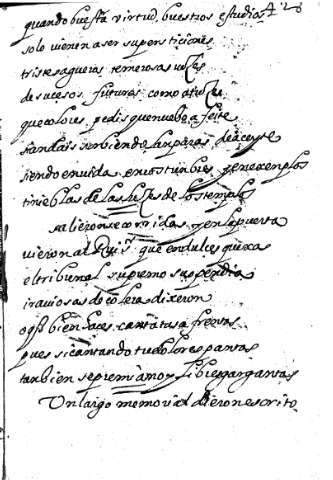 quando buestra virtud, buestros estudios 42
solo vienen a ser supersticiones
tristes agueros temerosas uoçes
de sucesos futuros como atroçes
que olores pedis que nuebe afeite
si andais sirbiendo lanparas de aceyte
siendo en vida, en costunbres y en exenplos
tinieblas de las luçes de los templos
salieronse corridas, y en la puerta
vieron al que en dulces quexas
el tribunal supremo suspendia
i raviosas de colera dixeron
o bien haces cantas a
pues si cantando tu dolor espantas
tanbien se premiamos y libres gargantas
Un largo memorial dieron escrito